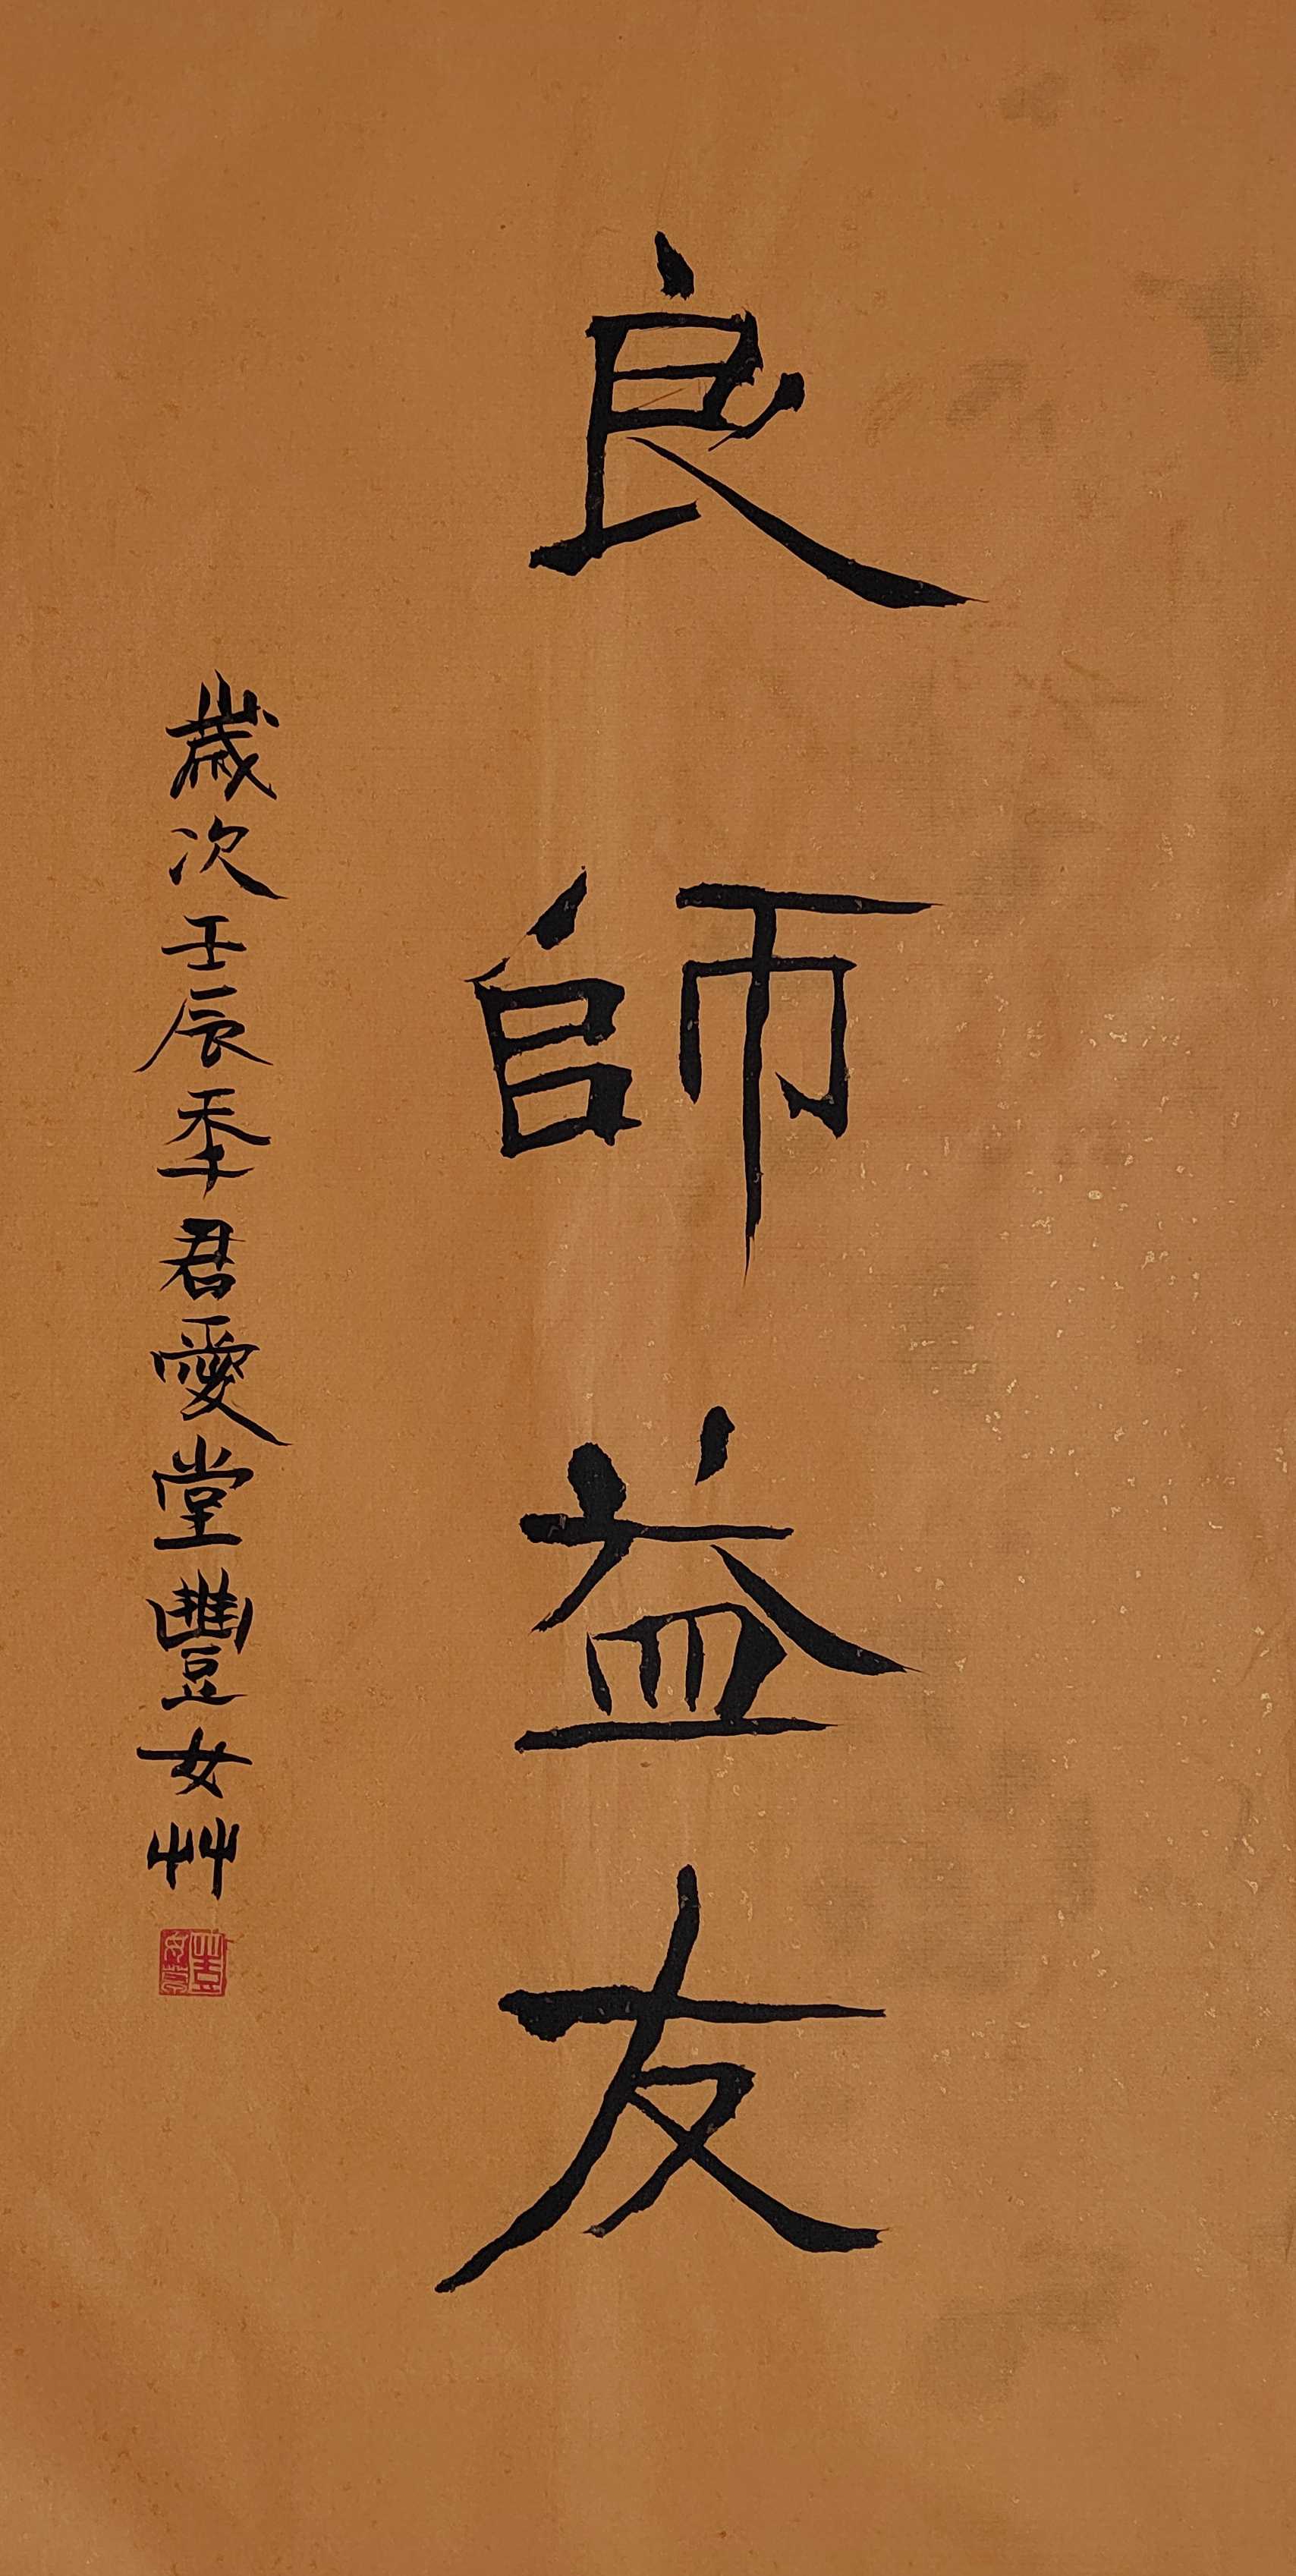 良師益友
歲次壬辰季君愛堂豐女艸